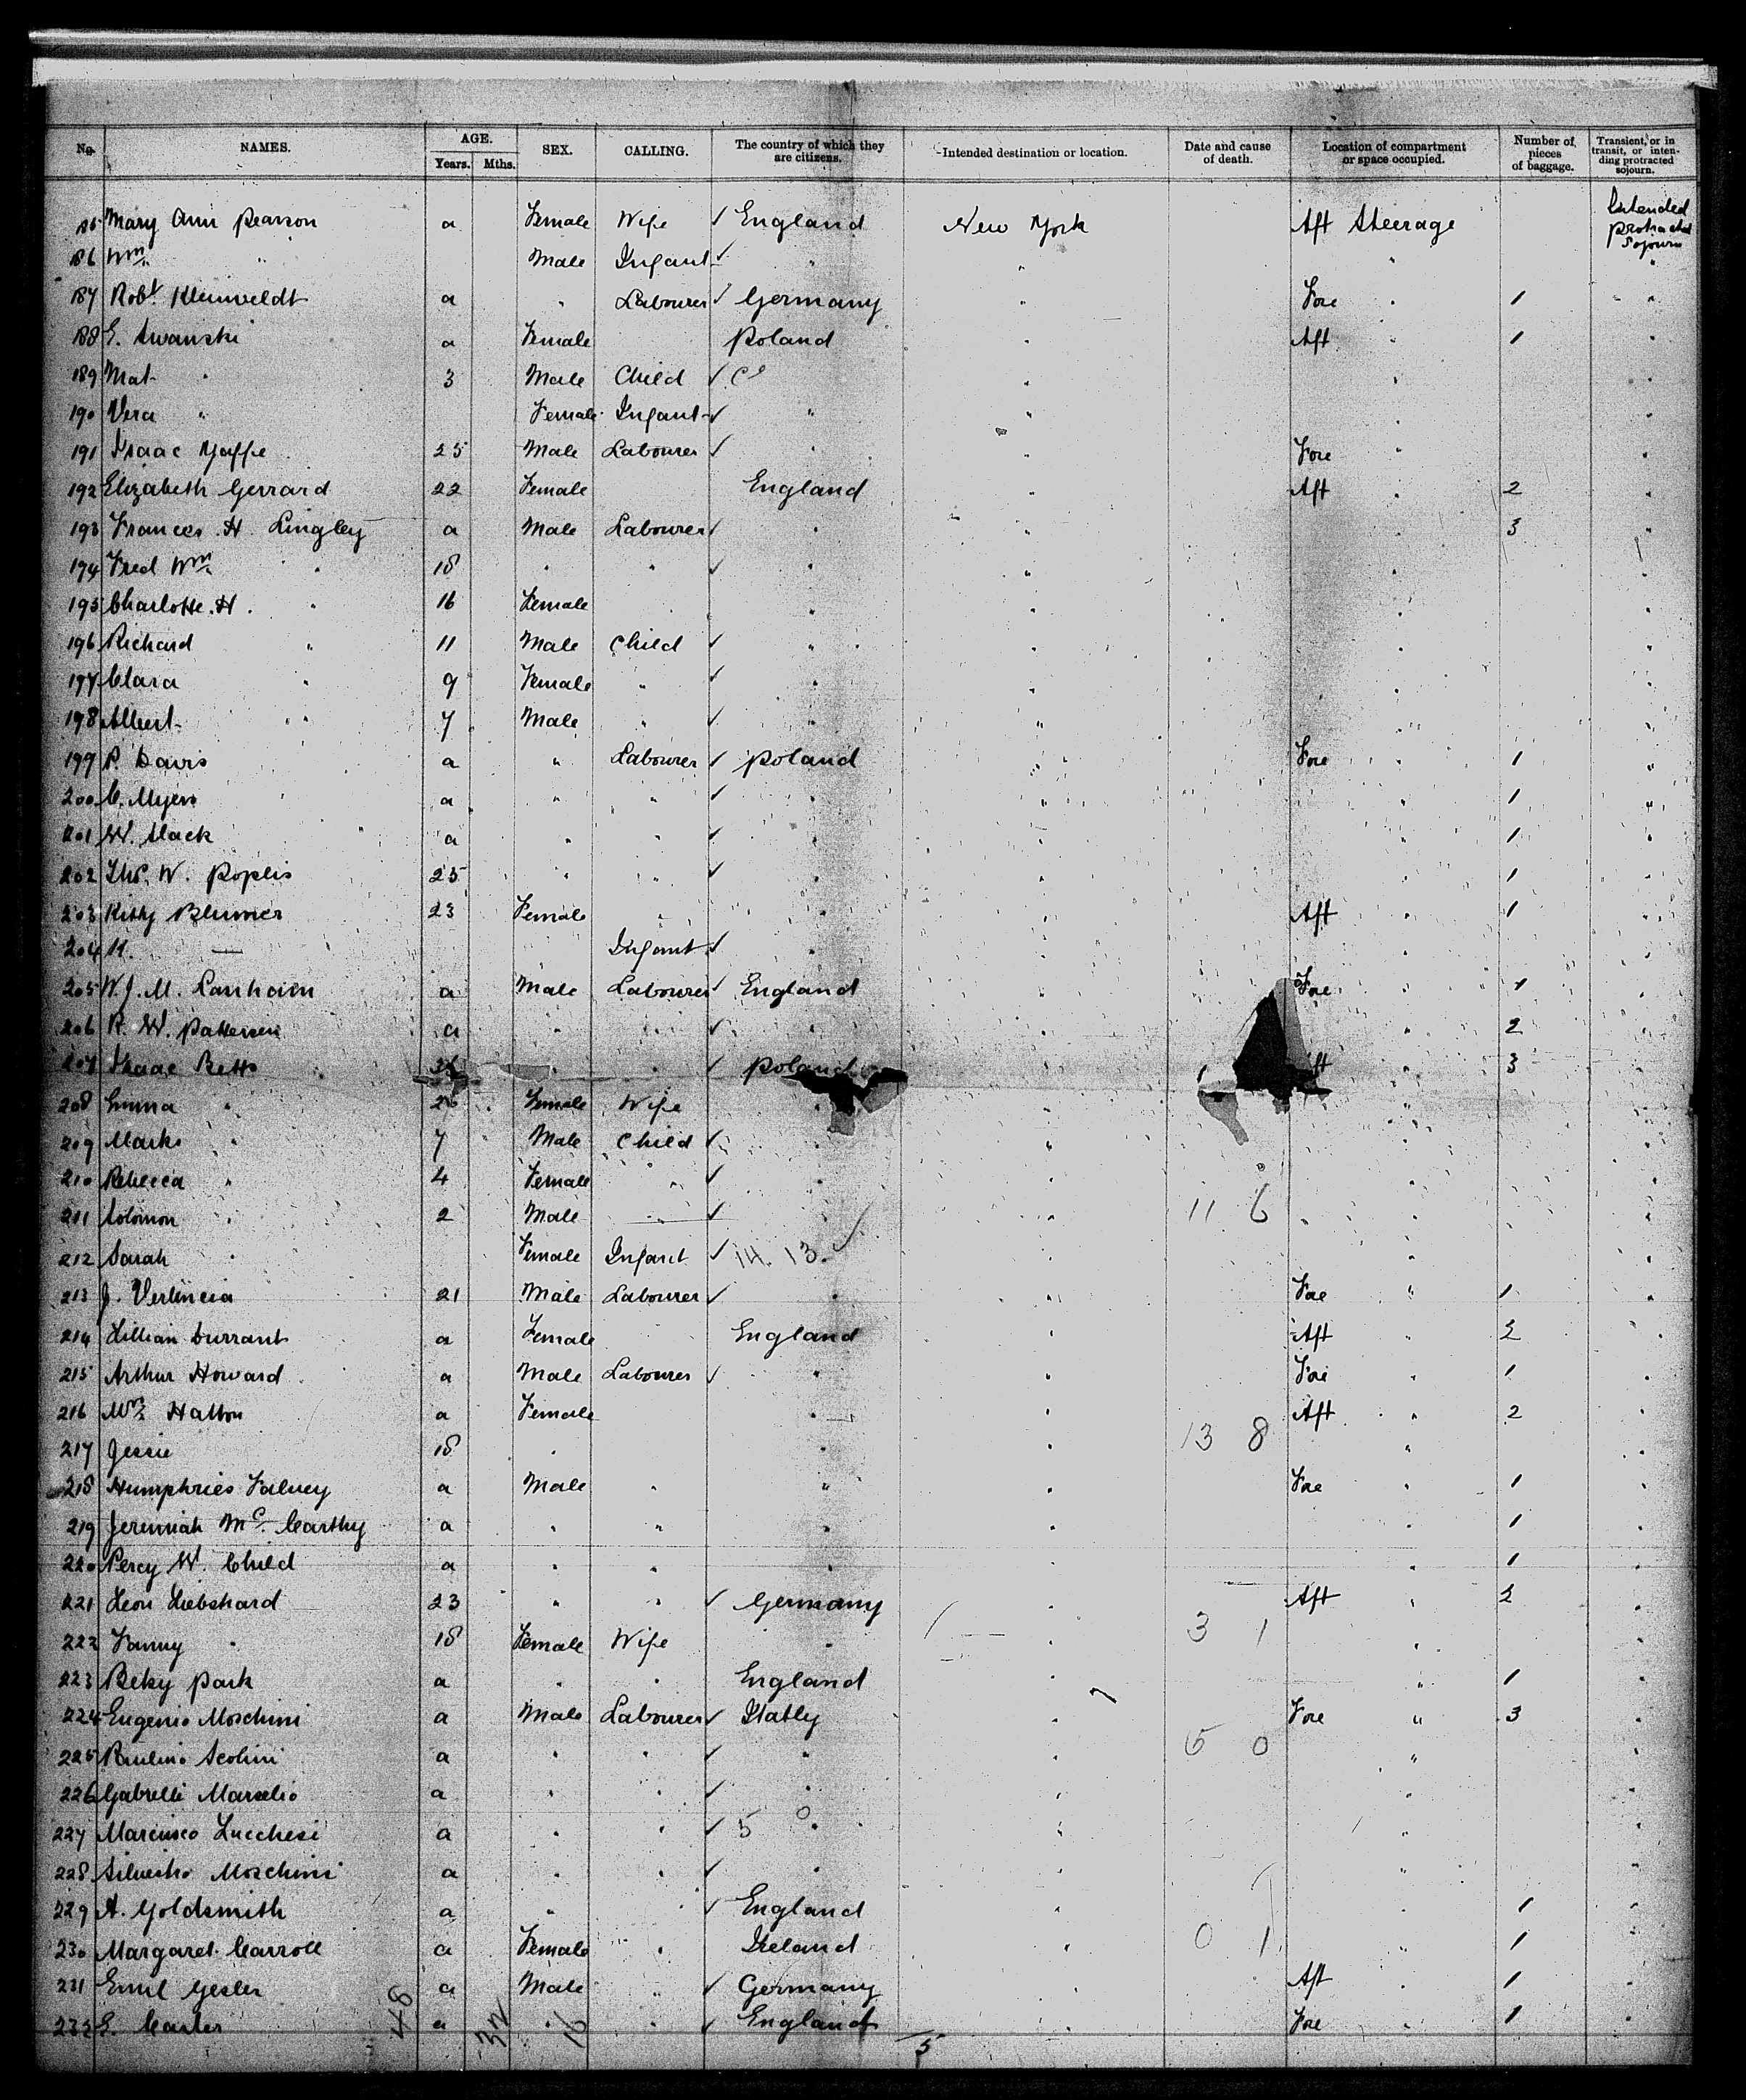 No. NAMES. AGE. Years. Mths. SEX. CALLING. The country of which they are citizens. Intended destination or location. Date and cause of death. Location of compartment or space occupied. Number of pieces of baggage. Transient, or in transit, or intending protracted sojourn.
185 Mary Ann Pearson a Female Wife ✓ England New York Aft Steerage Intended protracted Sojourn
186 Wm " Male Infant ✓ " " " "
187 Robt Kleinveldt a " Labourer ✓ Germany " Fore " 1 "
188 E. Swanski a Female Poland " Aft " 1 "
189 Mat " 3 Male Child ✓ " " "
190 Vera " Female Infant ✓ " " " "
191 Isaac Yaffe 25 Male Labourer ✓ " " Fore " "
192 Elizabeth Gerrard 22 Female England " Aft " 2 "
193 Frances H. Lingley a Male Labourer ✓ " " " 3 "
194 Fred Wm " 18 " " ✓ " " " "
195 Charlotte H. " 16 Female " " " "
196 Richard " 11 Male Child ✓ " " " "
197 Clara " 9 Female " ✓ " " " "
198 Albert " 7 Male " ✓ " " " "
199 P. Davis a " Labourer ✓ Poland " Fore " 1 "
200 C. Myers a " " ✓ " " " 1 "
201 W. Mack a " " ✓ " " " 1 "
202 W. Poplis 25 " " ✓ " " " 1 "
203 Kitty Blumer 23 Female " " " Aft " 1 "
204 — Infant ✓ " " " "
205 W. J. M. Lanham a Male Labourer ✓ England " Fore " 1 "
206 R. W. Patterson a " " ✓ " " " 2 "
207 Isaac Betts " " ✓ Poland " " 3 "
208 Emma " 26 Female Wife " " " "
209 Marks " 7 Male Child ✓ " " "
210 Rebecca " 4 Female " ✓ " " " "
211 Solomon " 2 Male " ✓ " " 11 6 " "
212 Sarah " Female Infant ✓ 14. 13. ✓ " " "
213 J. 21 Male Labourer ✓ " " Fore " 1 "
214 Lillian Durrant a Female England " Aft " 2 "
215 Arthur Howard a Male Labourer ✓ " " Fore " 1 "
216 Mrs Hatton a Female " " Aft " 2 "
217 Jessie 18 " " " 13 8 " "
218 Humphries Falvey a Male " " " Fore " 1 "
219 Jeremiah Mc Carthy a " " " " " 1 "
220 Percy W. Child a " " " " " 1 "
221 Leon Liebshard 23 " " ✓ Germany " Aft " 2 "
222 Fanny " 18 Female Wife " " 3 1 " "
223 Beky Park a " " England " " 1 "
224 Eugenio Moschini a Male Labourer ✓ Itatly " Fore " 3 "
225 Paulino Scolini a " " ✓ " " 5 0 " "
226 Gabrelli a " " ✓ " " " "
227 Lucchesi a " " ✓ 5 0 " " " "
228 Silvestro Moschini a " " ✓ " " " "
229 A. Goldsmith a " " ✓ England " 1 "
230 Margaret Carroll a Female " Ireland " 0 1 " 1 "
231 Emil Gesler a Male " ✓ Germany " Aft " 1 "
232 E. Carter a " " ✓ England " Fore " 1 "
48 32 16 5